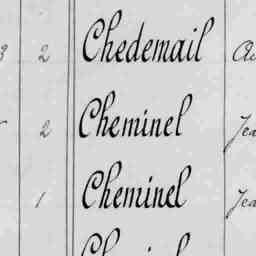 3 2 Chedemail
2 Cheminel Jea
1 Cheminel Jea